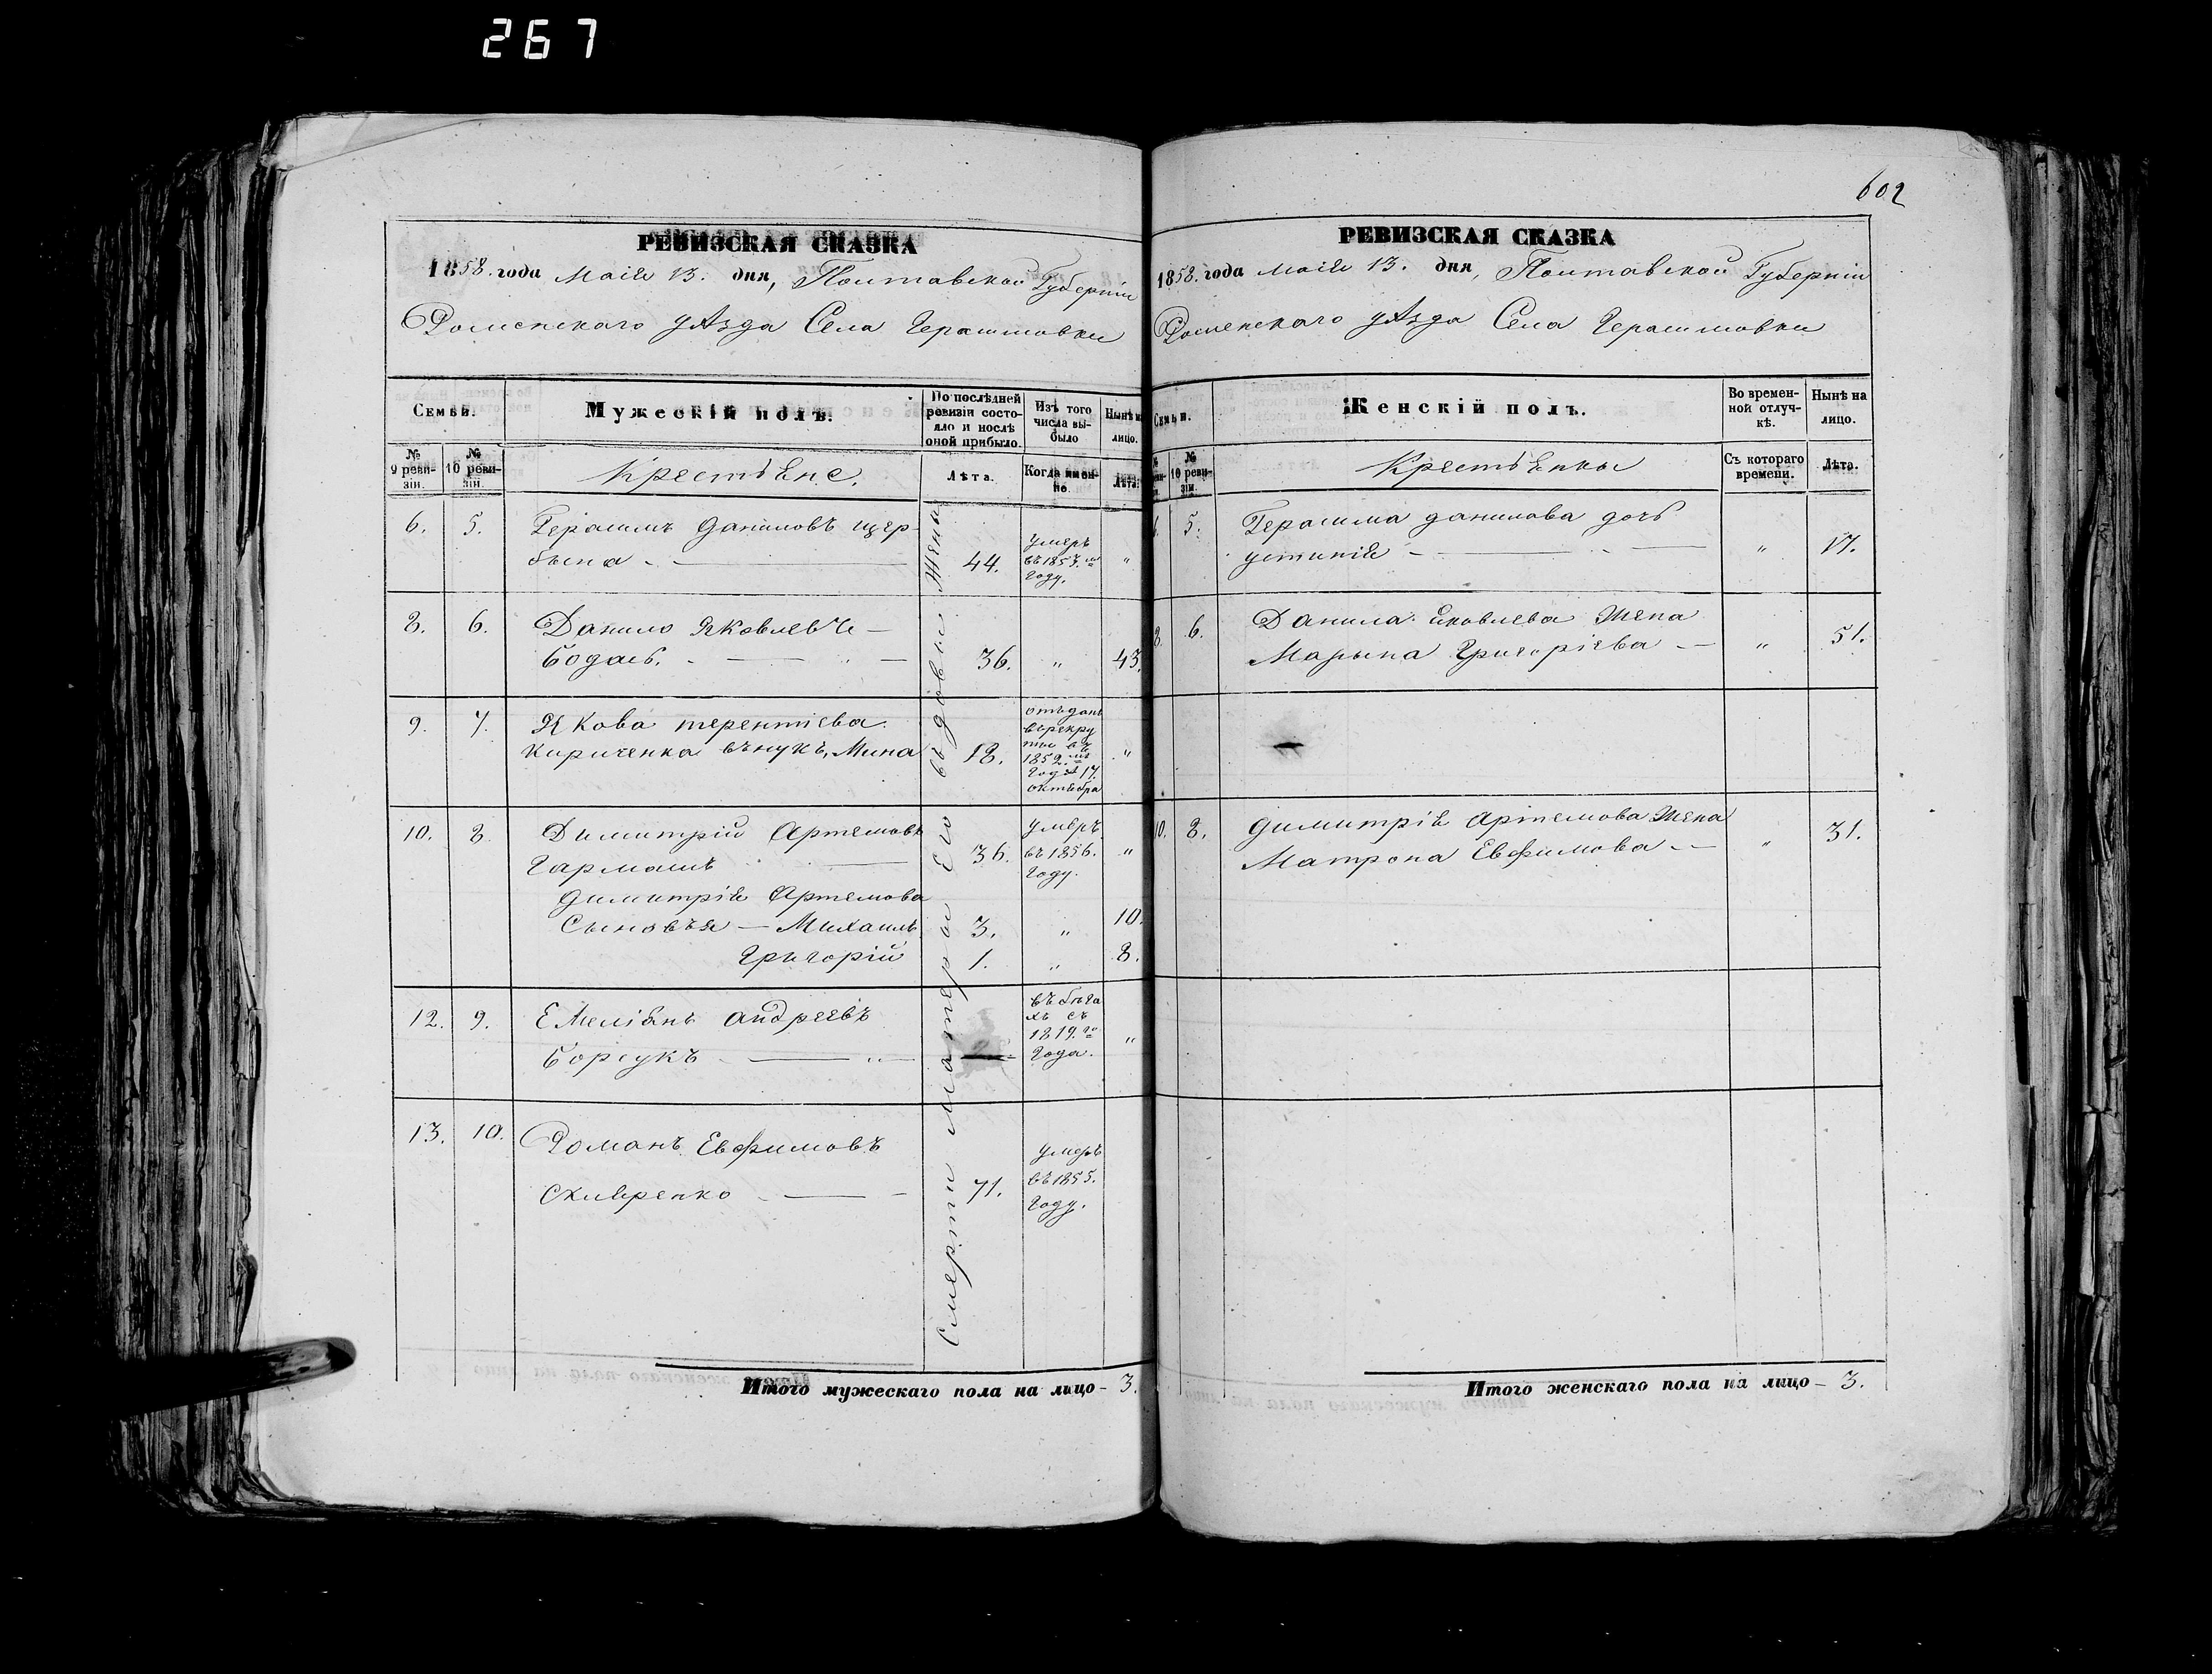 267
602
РЕВИЗСКАЯ СКАЗКА
1858. года маія 13. дня, Полтавской Губерніи
Роменскаго уѣзда Села Герасимовки
Семьи.
Мужескій полъ.
По послѣдней ревизіи состояло и послѣ оной прибыло.
Изъ того числа выбыло
Нынѣ на лицо.
№ 9 ревизіи.
№ 10 ревизіи.
Крестьяне.
Лѣта.
Когда именно.
Лѣта.
6. 5. Герасимъ даниловъ щер-
бина - 44. умеръ въ 1857.мъ Году. "
8. 6. Данило Яковлевъ -
Бодай. - 36. " 43.
9. 7. Якова терентіева
Кириченка внукъ, Мина 18. отъданъ въ рекруты въ 1852.мъ Году 17. октября "
10. 8. Димитрій Артемовъ
Гармашъ 36. умеръ въ 1856. Году. "
Димитрія Артемова
Сыновья - Михаилъ 3. " 10.
Григорій 1. " 8.
12. 9. Емеліянъ андреевъ
Борсукъ - въ бѣгахъ съ 1819.го Года. "
13. 10. Романъ Евфимовъ
71. умеръ въ 1855. Году.
Смерти матери Его вдовы Жены
Итого мужескаго пола на лицо - 3.
РЕВИЗСКАЯ СКАЗКА
1858. года маія 13. дня, Полтавской Губерніи
Роменскаго уѣзда Села Герасимовки
Семьи.
Женскій полъ.
Во временной отлучкѣ.
Нынѣ на лицо.
№ 10 ревизіи.
Крестьянки
Съ котораго времени.
Лѣта.
5. Герасима данилова дочь
устинія - " 17.
8. 6. Данила Яковлева жена
Марына Григоріева - " 51.
10. 8. Димитрія Артемова жена
Матрона Евфимова - " 31.
Итого женскаго пола на лицо - 3.